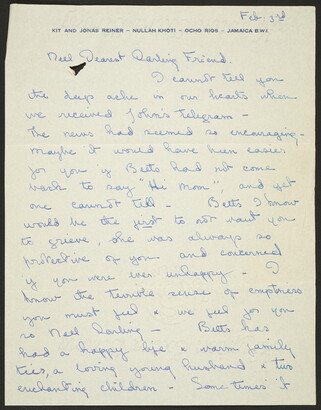 Feb. 3rd
KIT AND JONAS REINER – NULLAH KHOTI – OCHO RIOS – JAMAICA B.W.I.
Nell Dearest Darling Friend.
I cannot tell you
the deep ache in our hearts when
we received John's Telegram –
The news had seemed so encouraging –
Maybe it would have been easier
for you if Betts had not come
back to say "Hi Mom", and yet
one cannot tell – Betts I know
would be the first to not want you
to grieve, she was always so
protective of you and concerned
if you were ever unhappy – I
know the terrible sense of emptiness
you must feel & we feel for you
so Nell Darling – Betts has
had a happy life & warm family
ties, a loving young husband & two
enchanting children – Sometimes it